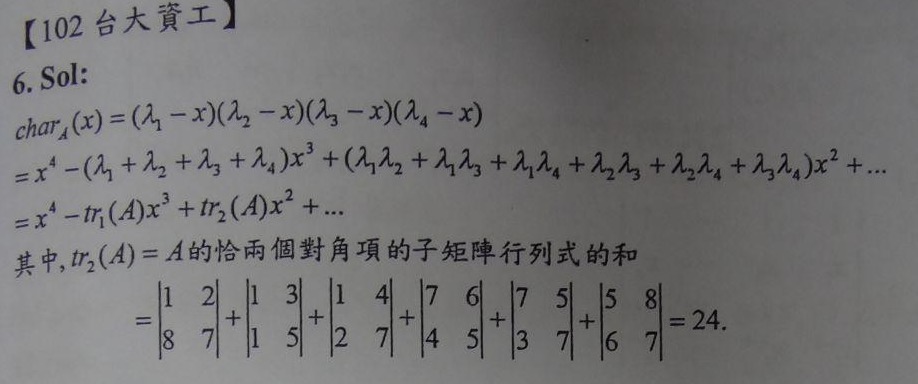 【102 台大資工】
6. Sol:
char_A(x) = (λ₁ − x)(λ₂ − x)(λ₃ − x)(λ₄ − x)
= x⁴ − (λ₁ + λ₂ + λ₃ + λ₄)x³ + (λ₁λ₂ + λ₁λ₃ + λ₁λ₄ + λ₂λ₃ + λ₂λ₄ + λ₃λ₄)x² + ...
= x⁴ − tr₁(A)x³ + tr₂(A)x² + ...
其中, tr₂(A) = A的恰兩個對角項的子矩陣行列式的和
= |1 2; 8 7| + |1 3; 1 5| + |1 4; 2 7| + |7 6; 4 5| + |7 5; 3 7| + |5 8; 6 7| = 24.